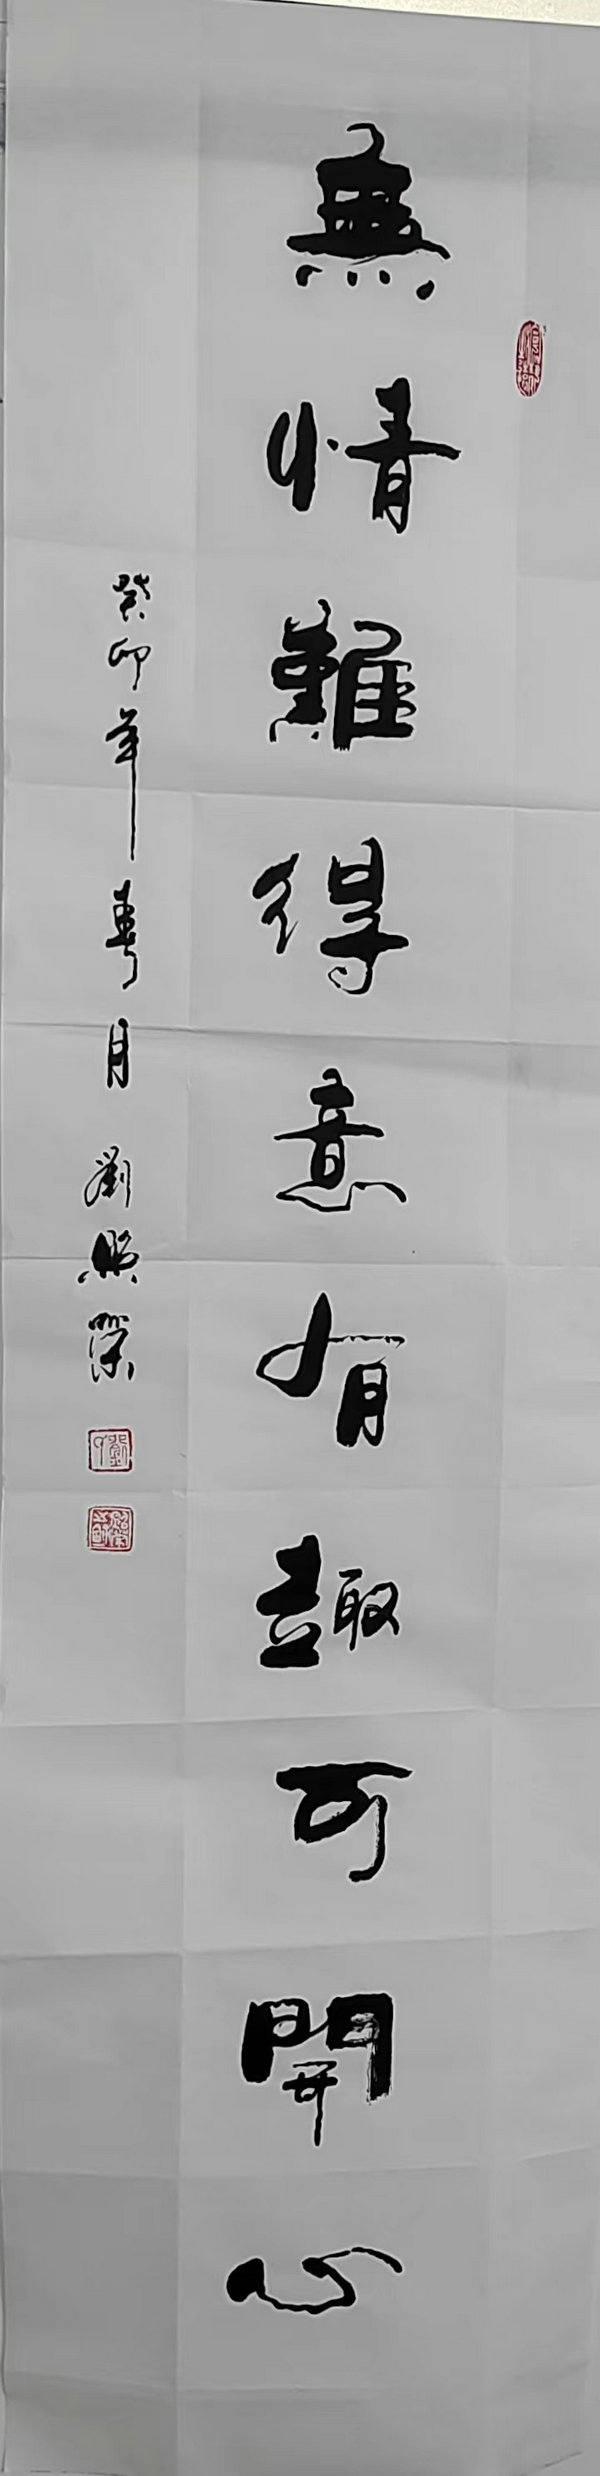 無情難得意有趣可開心
癸卯年春月劉照榮